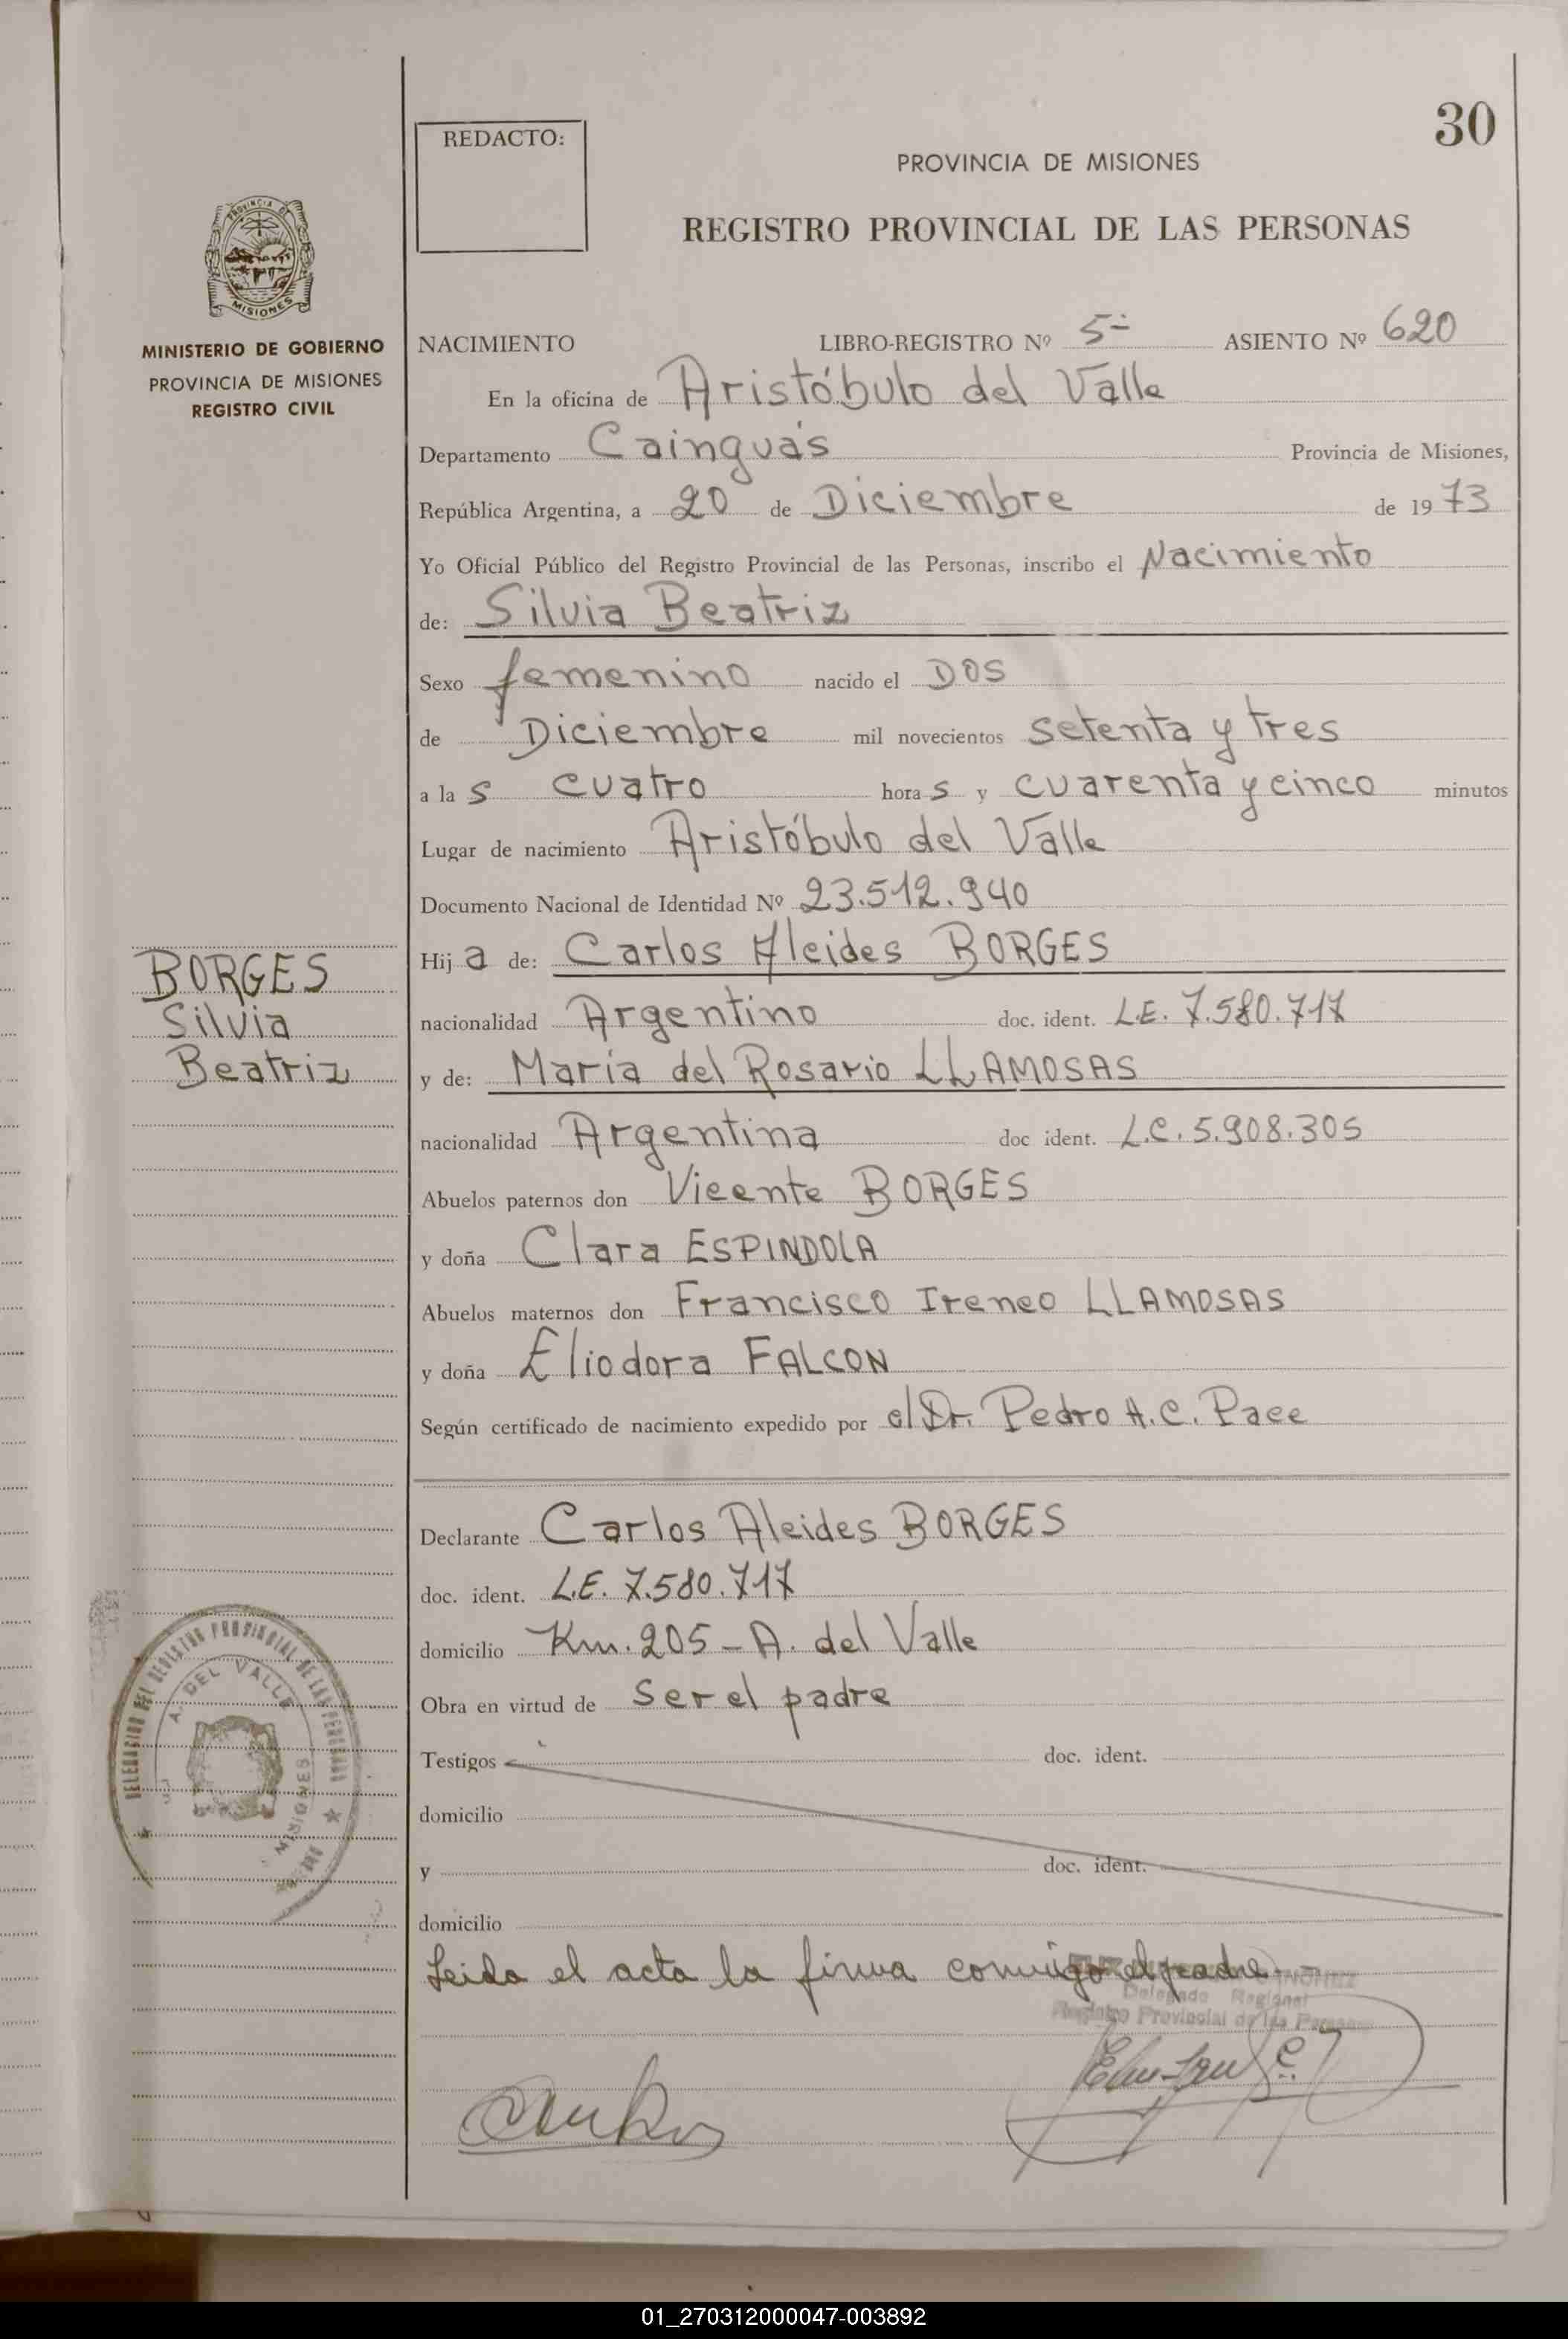 30
REDACTO:
PROVINCIA DE MISIONES
REGISTRO PROVINCIAL DE LAS PERSONAS
PROVINCIA DE
MISIONES
MINISTERIO DE GOBIERNO
PROVINCIA DE MISIONES
REGISTRO CIVIL
NACIMIENTO LIBRO-REGISTRO Nº 5- ASIENTO Nº 620
En la oficina de Aristóbulo del Valle
Departamento Cainguás Provincia de Misiones,
República Argentina, a 20 de Diciembre de 1973
Yo Oficial Público del Registro Provincial de las Personas, inscribo el Nacimiento
de: Silvia Beatriz
Sexo femenino nacido el DOS
de Diciembre mil novecientos setenta y tres
a las cuatro horas y cuarenta y cinco minutos
Lugar de nacimiento Aristóbulo del Valle
Documento Nacional de Identidad Nº 23.512.940
BORGES
Silvia
Beatriz
Hija de: Carlos Aleides BORGES
nacionalidad Argentino doc. ident. L.E. 7.580.717
y de: María del Rosario LLAMOSAS
nacionalidad Argentina doc ident. L.C. 5.908.305
Abuelos paternos don Vicente BORGES
y doña Clara ESPINDOLA
Abuelos maternos don Francisco Ireneo LLAMOSAS
y doña Eliodora FALCON
Según certificado de nacimiento expedido por el Dr. Pedro A.C. Pace
Declarante Carlos Aleides BORGES
doc. ident. L.E. 7.580.717
domicilio Km. 205 - A. del Valle
Obra en virtud de Ser el padre
Testigos doc. ident.
domicilio
y doc. ident.
domicilio
DELEGACION DEL REGISTRO PROVINCIAL DE LAS PERSONAS
A. DEL VALLE
MISIONES
Leida el acta la firma conmigo el padre.-
Delegado Regional
Registro Provincial de las Personas
01_270312000047-003892